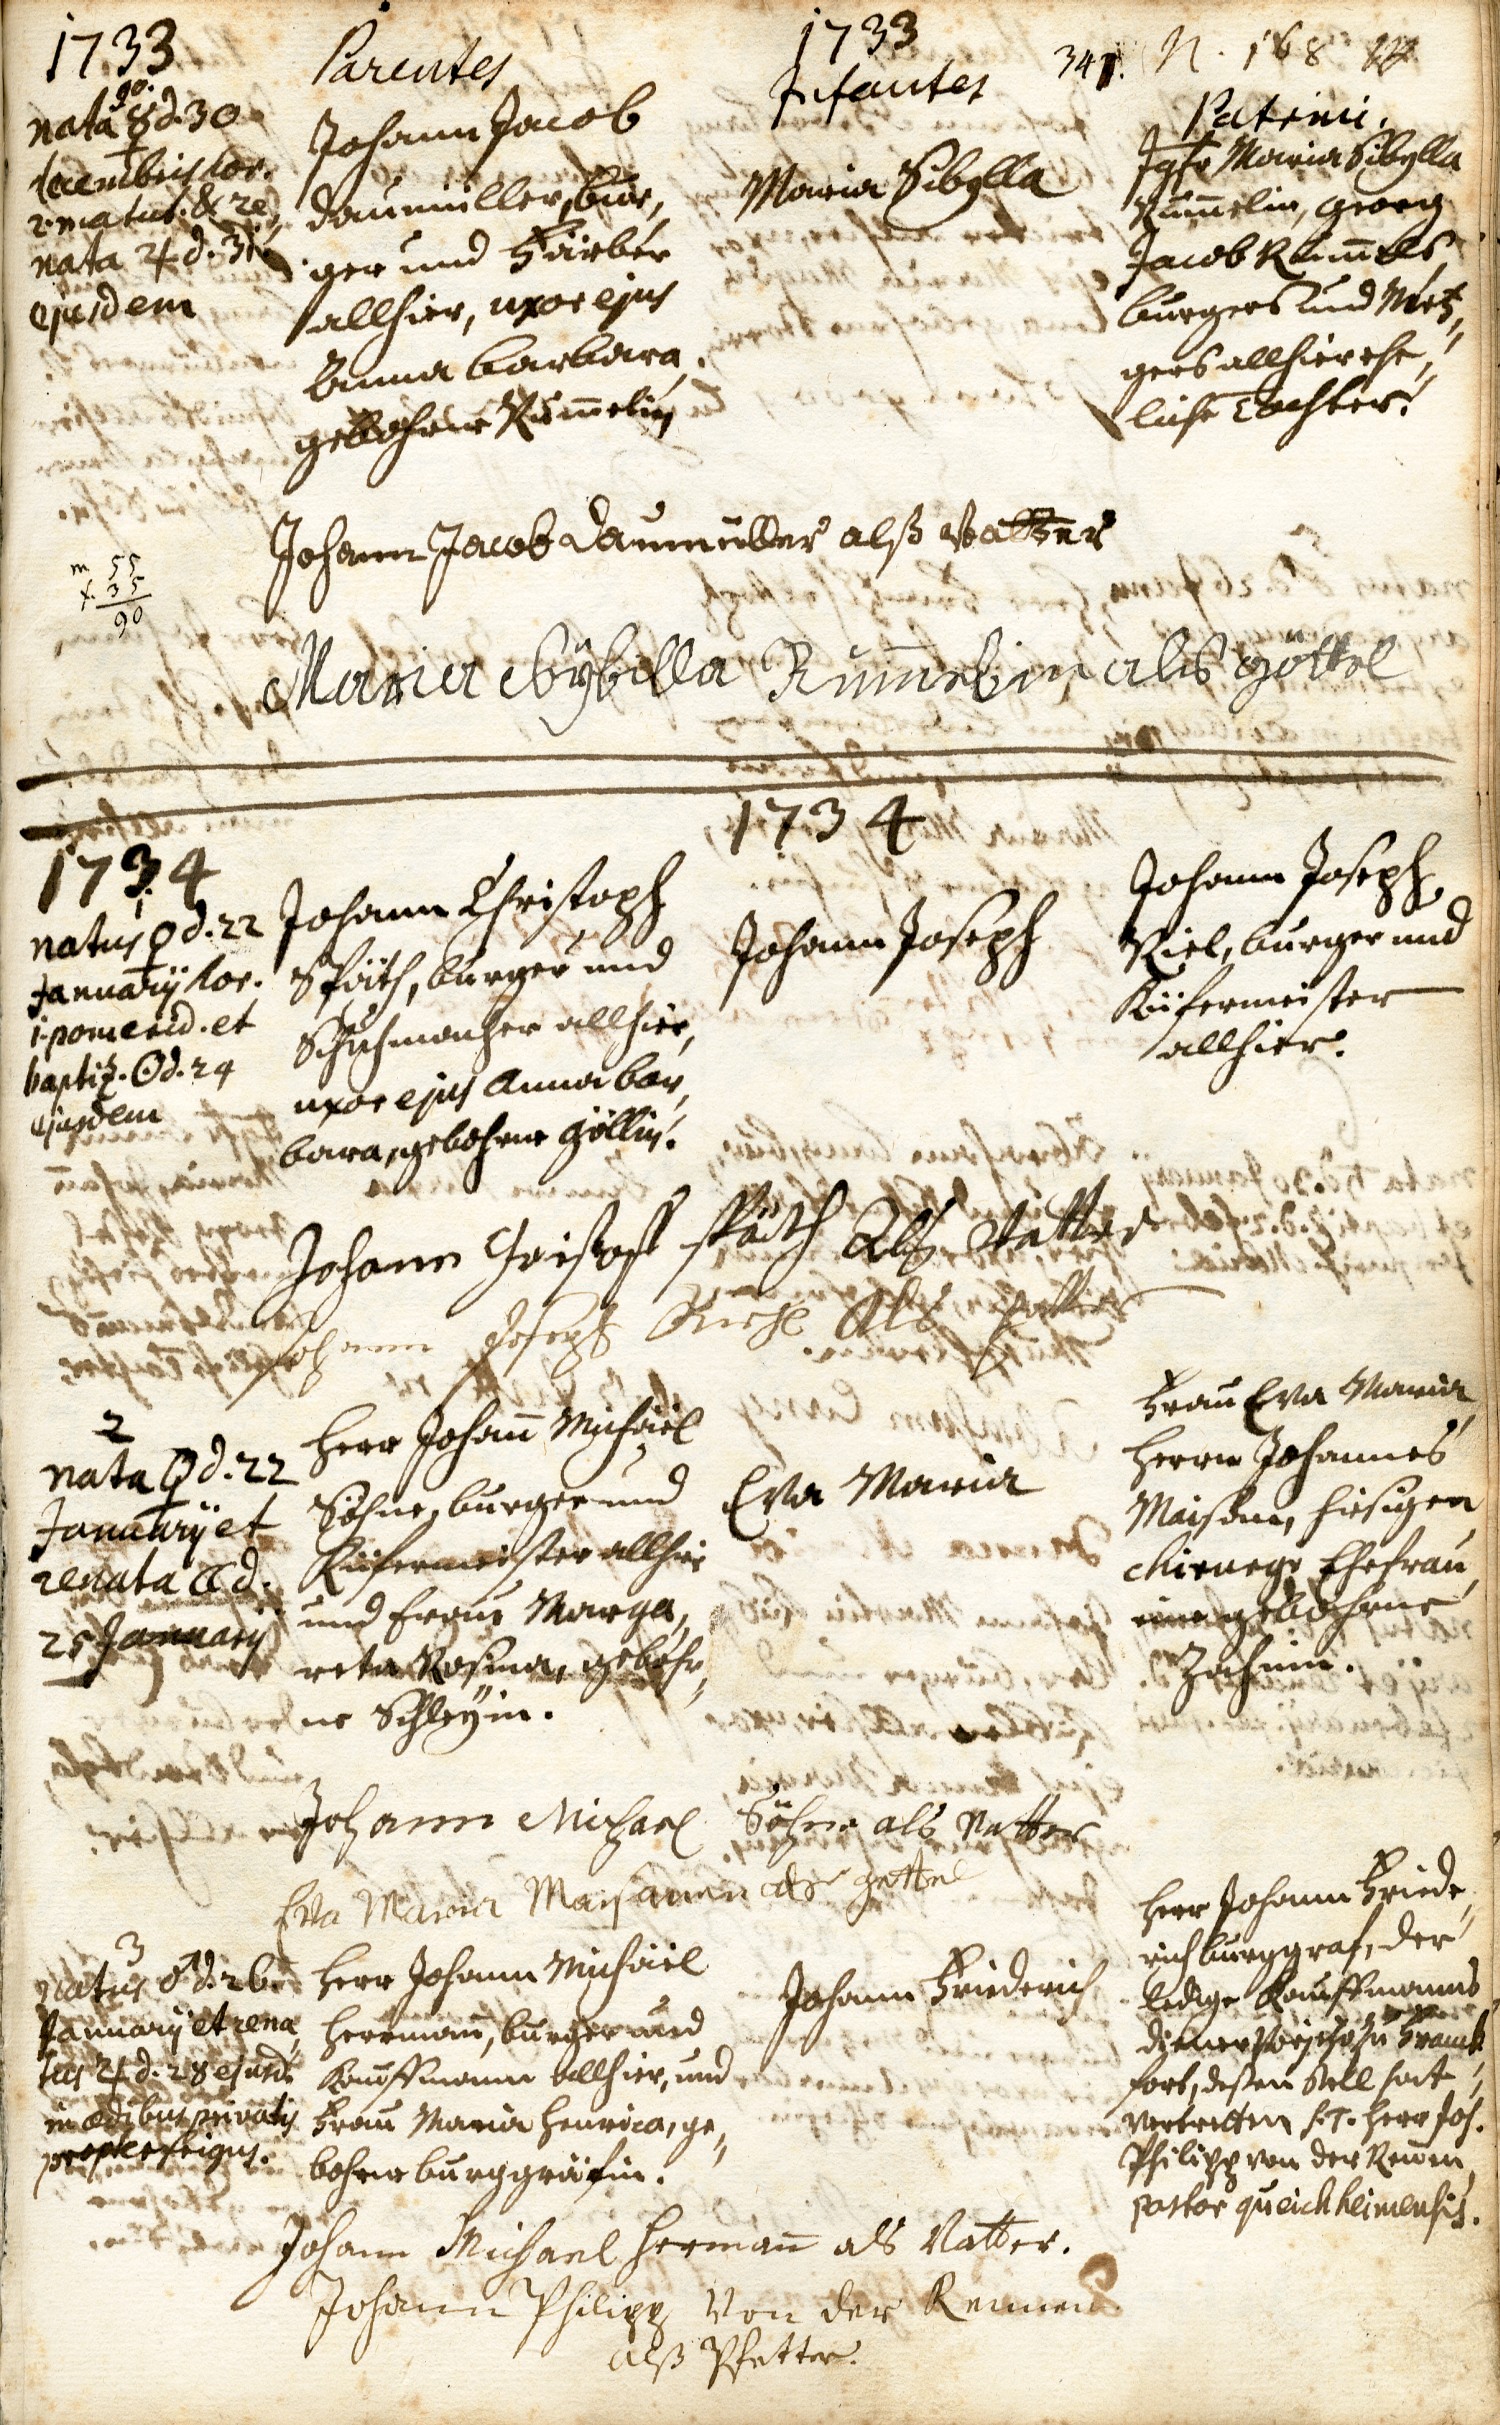 1733
90.
nata ☿ d. 30
decembris hor.
2. matut. & re,
nata ♃ d. 31.
ejusdem
Parentes
Johann Jacob
Daumüller, bur,
ger und Färber
allhier, uxor ejus
Anna Barbara,
gebohrne Rum̄elin
1733
Infantes
Maria Sibylla
341. N. 168
Patrini.
Jgfr Maria Sibylla
Rum̄elin, Georg
Jacob Rum̄els
burgers und Metz,
gers allhier ehe,
liche Tochter.
Johann Jacob Daumüller alß Vatter
m 55
f. 35
90
Maria Sybilla Rum̄elin als göttel
1734
1734
1.
natus ♀ d. 22
January hor.
1. pomerid. et
baptiz. ☉ d. 24
ejusdem
Johann Christoph
Späth, burger und
Schuhmacher allhier,
uxor ejus Anna Bar,
bara, gebohrne Göllin.
Johann Joseph
Johann Joseph
Riel, burger und
Küfermeister
allhier.
Johann Christoff Späth Als Vatter
Johann Joseph Riehl Als
2
nata ♀ d. 22
Januarÿ et
renata ☾ d.
25 Januarÿ
Herr Johan̄ Michäel
Söhne, burger und
Küfermeister allhier
und Fraue Marga,
reta Rosina, gebohr,
ne Schleÿin.
Eva Maria
Frau Eva Maria
Herrn Johannes
Maison, hiesigen
Chirurgi Ehefrau
eine gebohrne
Zachnin.
Johann Michael Söhne als Vatter
Eva Maria Maisonin als gettel
3
natus ♂ d. 26.
Januarÿ et rena,
tus ♃ d. 28 ejusd.
in ædibus privatis
propter frigus.
Herr Johann Michäel
Herrman̄, burger und
Kauffmann allhier, und
Frau Maria Henrica, ge,
bohrne Burggräfin.
Johann Friederich
Herr Johann Friede,
rich Burggraf, der
ledige Kauffmanns
diener zu Franck
fort, deßen Stell hat
vertretten S. T. Herr Joh.
Philipp von der Reuen
pastor Queichheimensis.
Johann Michael Herman̄ als Vatter.
Johann Philipp Von der Reuen
alß Pfetter.